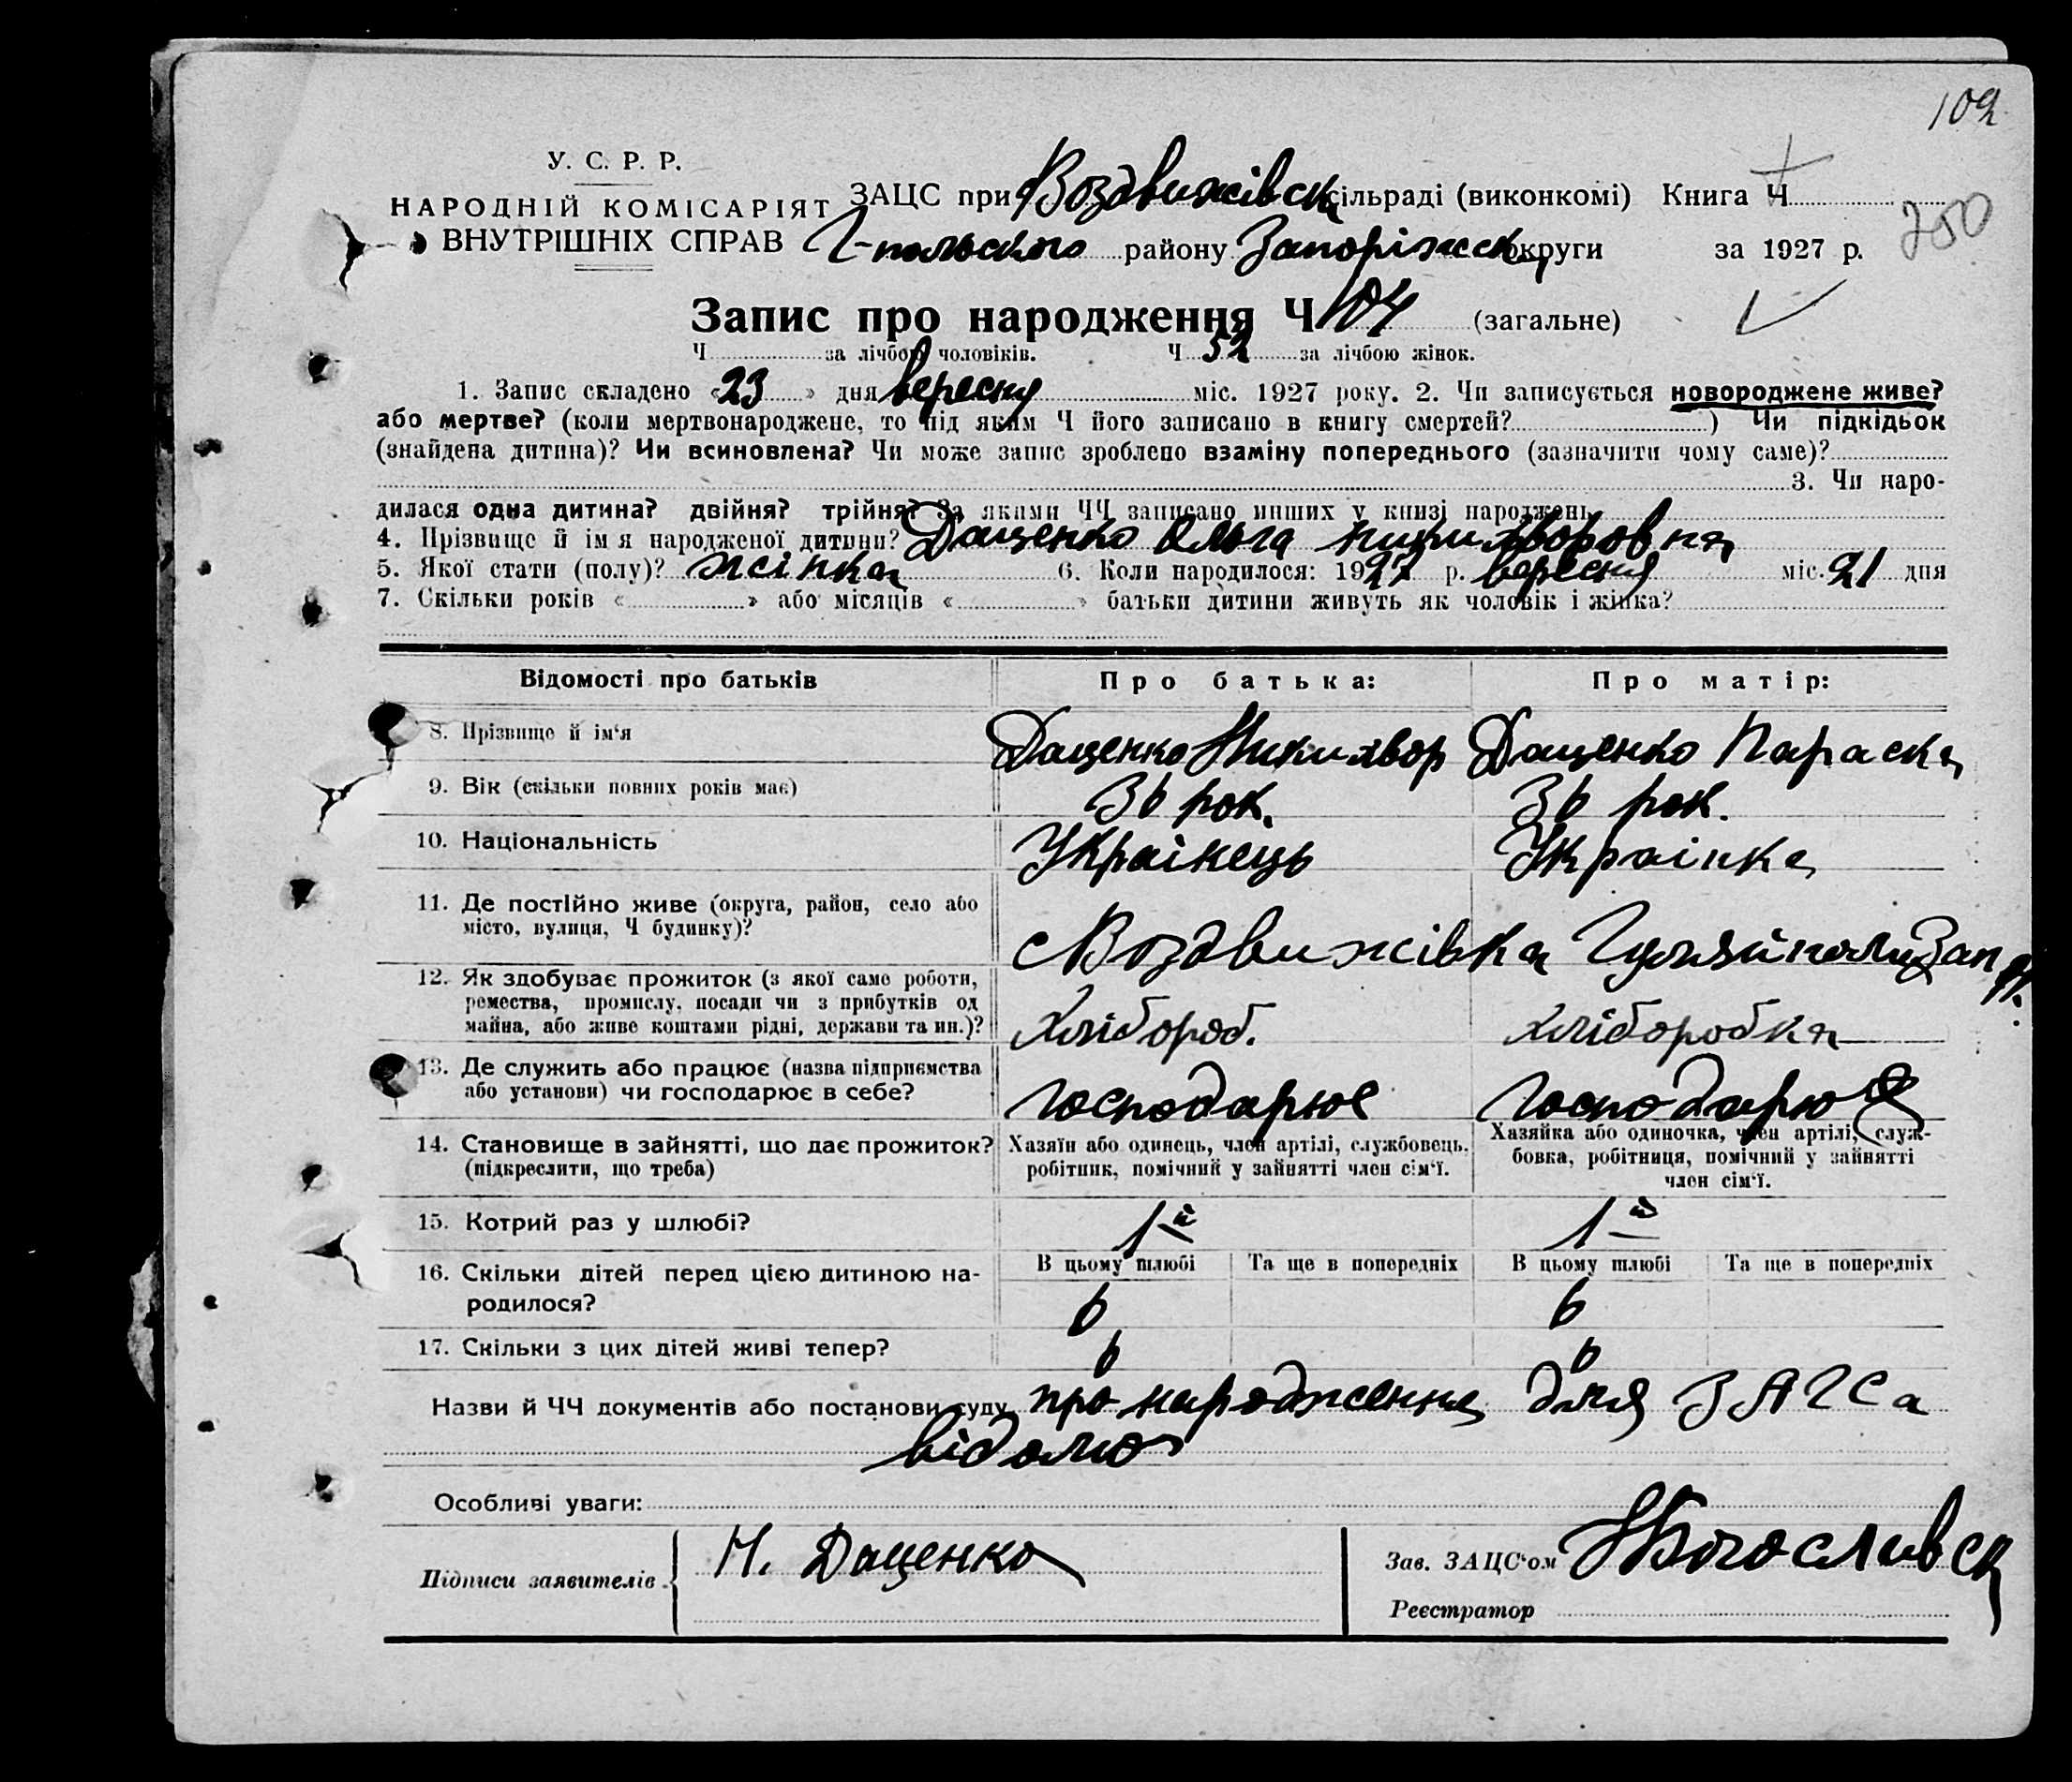 102
У. С. Р. Р.
НАРОДНІЙ КОМІСАРІЯТ
ВНУТРІШНІХ СПРАВ
ЗАЦС при Воздвижівск сільраді (виконкомі) Книга Ч
Г-польского району Запоріжск округи за 1927 р.
250
Запис про народження Ч 104 (загальне)
Ч за лічбою чоловіків. Ч 52 за лічбою жінок.
1. Запис складено «23» дня вересня міс. 1927 року. 2. Чи записується новороджене живе?
або мертве? (коли мертвонароджене, то під яким Ч його записано в книгу смертей? ) Чи підкідьок
(знайдена дитина)? Чи всиновлена? Чи може запис зроблено взаміну попереднього (зазначити чому саме)?
3. Чи наро-
дилася одна дитина? двійня? трійня? За якими ЧЧ записано инших у книзі народжень
4. Прізвище й ім я народженої дитини? Даценко Ольга Никихворовна
5. Якої стати (полу)? жінка 6. Коли народилося: 1927 р. вересня міс. 21 дня
7. Скільки років « » або місяців « » батьки дитини живуть як чоловік і жінка?
Відомості про батьків Про батька: Про матір:
8. Прізвище й ім'я Даценко Никихвор Даценко Параска
9. Вік (скільки повних років має) 36 рок. 36 рок.
10. Національність Українець Українка
11. Де постійно живе (округа, район, село або
місто, вулиця, Ч будинку)?
с Воздвижівка Гуляйполя Зап
12. Як здобуває прожиток (з якої само роботи,
ремества, промислу, посади чи з прибутків од
майна, або живе коштами рідні, держави та ин.)?
Хлібороб. хліборобка
13. Де служить або працює (назва підприємства
або установи) чи господарює в себе?
господарює господарює
14. Становище в зайнятті, що дає прожиток?
(підкреслити, що треба)
Хазяїн або одинець, член артілі, службовець,
робітник, помічний у зайнятті член сім'ї.
Хазяйка або одиночка, член артілі, служ-
бовка, робітниця, помічний у зайнятті
член сім'ї.
15. Котрий раз у шлюбі? 1-й 1-й
В цьому шлюбі Та ще в попередніх В цьому шлюбі Та ще в попередніх
16. Скільки дітей перед цією дитиною на-
родилося?
6 6
17. Скільки з цих дітей живі тепер? 6 6
Назви й ЧЧ документів або постанови суду про народження для ЗАГСа
відомо
Особливі уваги:
Підписи заявителів Н. Даценко
Зав. ЗАЦС'ом НБогословск
Реєстратор